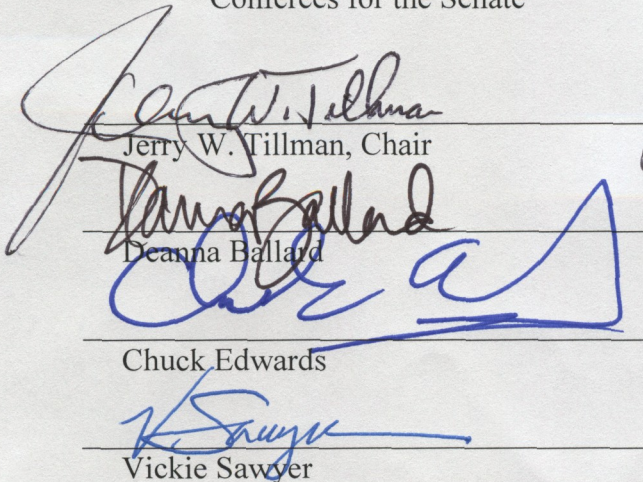 Conferees for the Senate
Jerry W. Tillman
Jerry W. Tillman, Chair
Deanna Ballard
Deanna Ballard
Chuck Edwards
V Sawyer
Vickie Sawyer